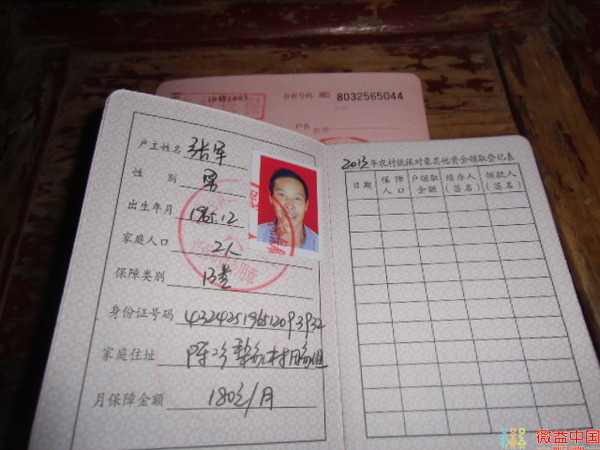 存折号码
8032565044
户名
户主姓名 张军
性 别 男
出生年月 1965.12
家庭人口 2人
保障类别 B类
身份证号码 432425196512093932
家庭住址
月保障金额 180元/月
2013年农村低保对象其他资金领取登记表
日期 保障人口 户领取金额 经办人(签名) 领款人(签名)
微益中国